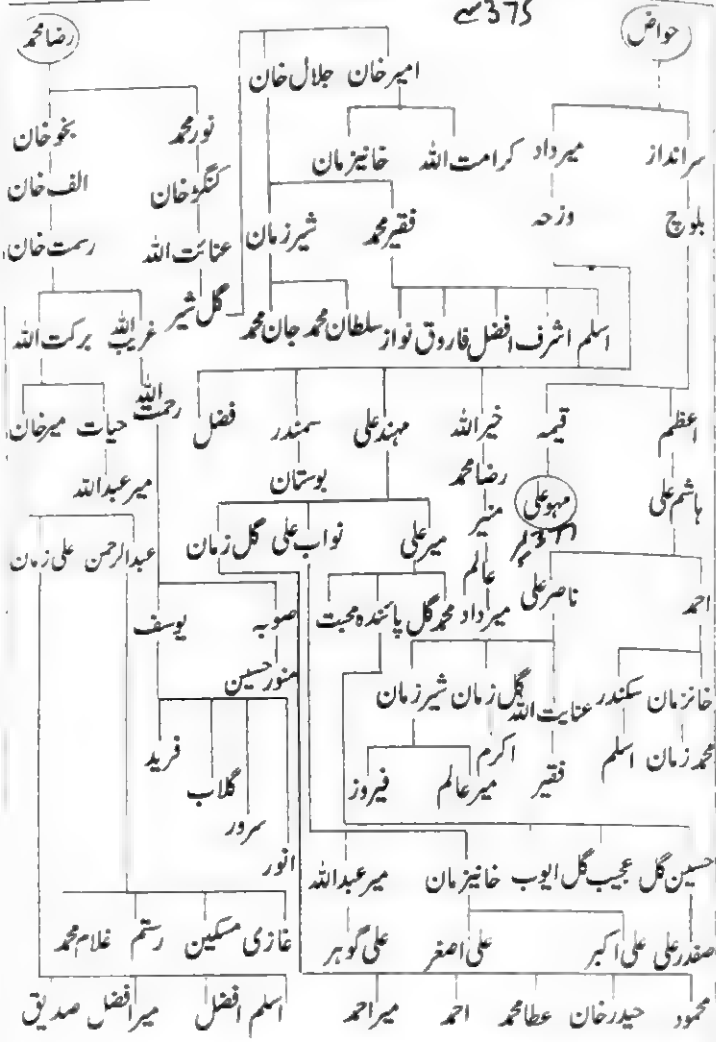 375 سے
حواض رضا محمد
امیر خان جلال خان
سرانداز میرداد کرامت اللہ خانیزمان نور محمد بخو خان
کنگر خان الف خان
بلوچ وزحہ فقیر محمد شیر زمان عنائت اللہ رسمت خان
اسلم اشرف افضل فاروق نواز سلطان محمد جان محمد گل شیر غریب اللہ برکت اللہ
اعظم قیمہ خیر اللہ مہند علی سمندر فضل رحمت اللہ حیات میر خان
ہاشم علی مہو علی رضا محمد بوستان میر عبداللہ
منیر میر علی نواب علی گل زمان عبدالرحمن علی زمان
عالم
احمد ناصر علی میرداد محمد گل پائندہ محبت صوبہ یوسف
خانزمان سکندر عنایت اللہ گل زمان شیر زمان منور حسین
محمد زمان اسلم فقیر اکرم میر عالم فیروز فرید
گلاب
سرور
حسین گل عجیب گل ایوب خانیزمان میر عبداللہ انور
صفدر علی علی اکبر علی اصغر علی گوہر غازی مسکین رستم غلام محمد
محمود حیدر خان عطا محمد احمد میر احمد اسلم افضل میر افضل صدیق